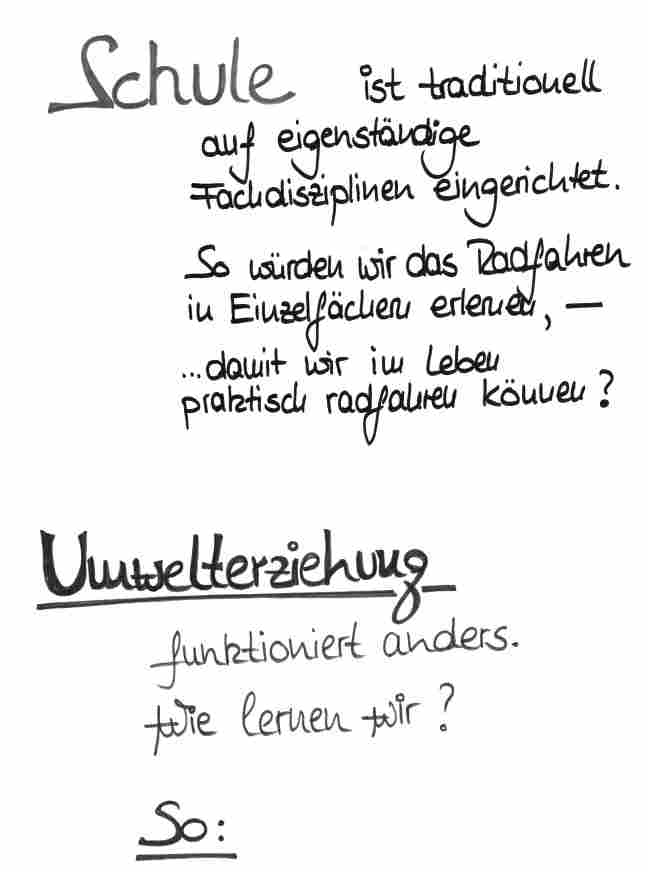 Schule ist traditionell
auf eigenständige
Fachdisziplinen eingerichtet.
So würden wir das Radfahren
in Einzelfächern erlernen, —
...damit wir im Leben
praktisch radfahren können?
Umwelterziehung
funktioniert anders.
Wie lernen wir?
So: